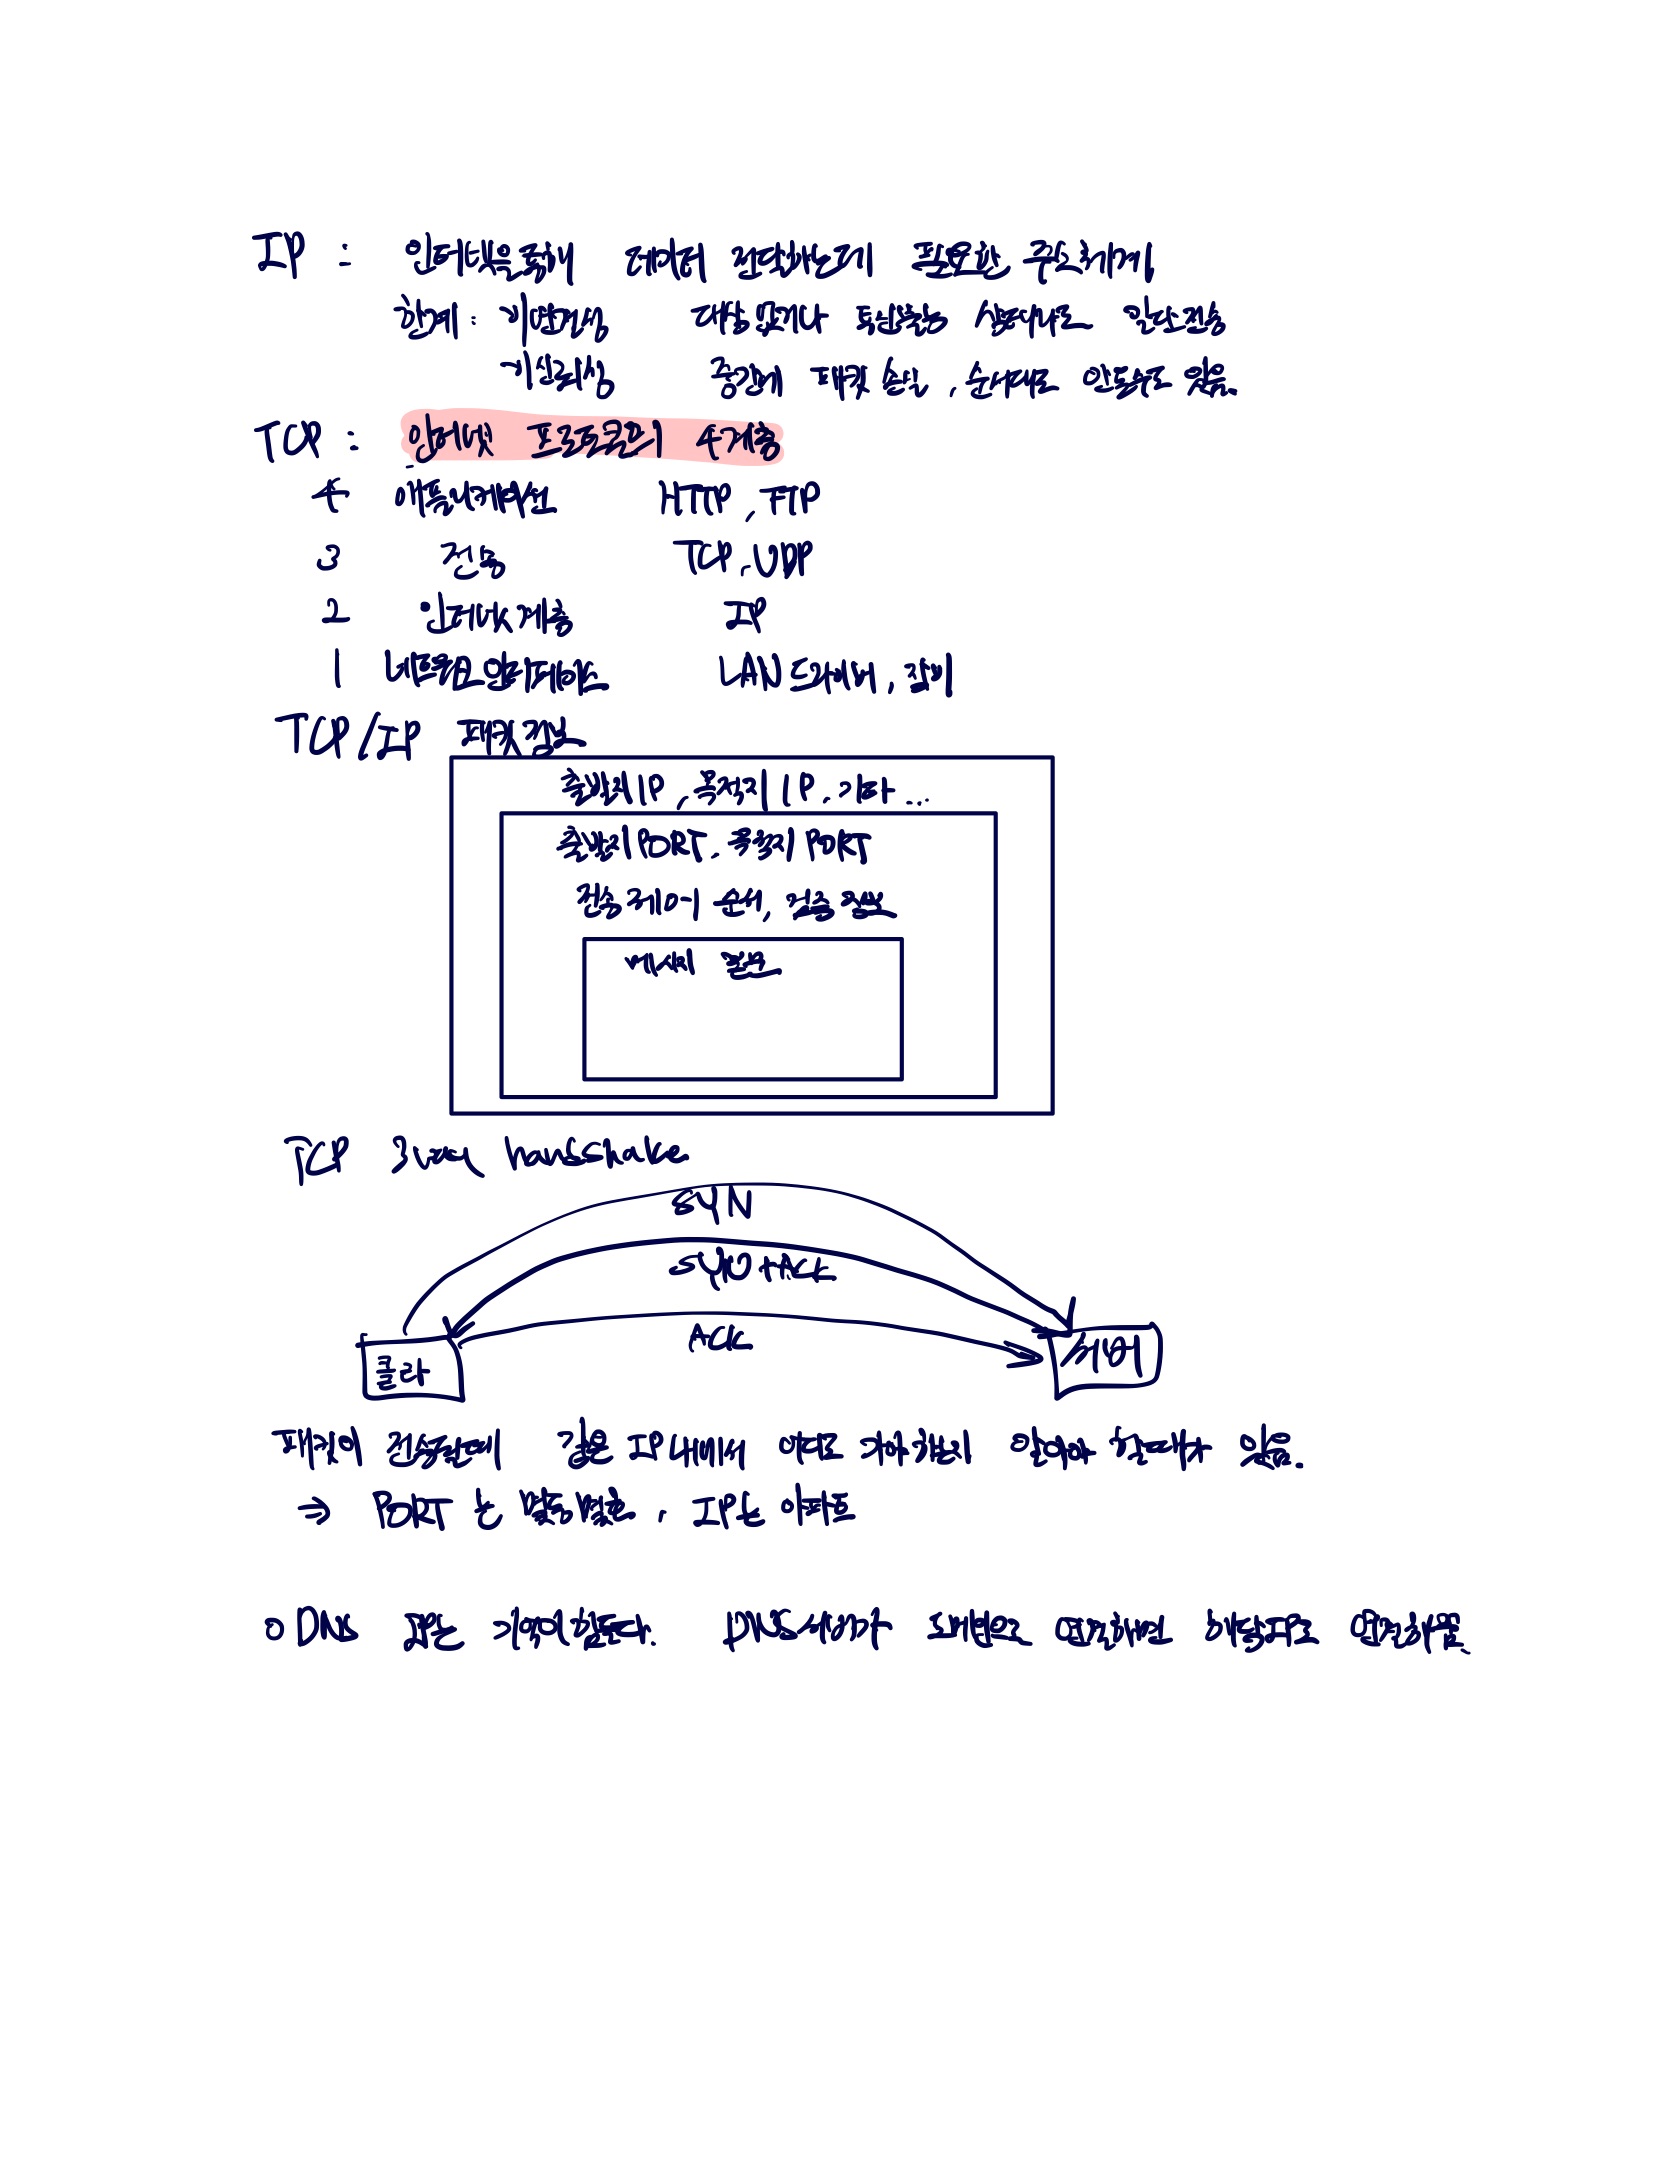 IP : 인터넷을 통해 데이터 전달하는데 필요한 주소체계
한계 : 비연결성 대상 없거나 통신불능 상태라도 일단전송
비신뢰성 중간에 패킷 손실, 순서대로 안올수도 있음.
TCP : 인터넷 프로토콜의 4계층
4 애플리케이션 HTTP, FTP
3 전송 TCP, UDP
2 인터넷 계층 IP
1 네트워크 인터페이스 LAN 드라이버, 장비
TCP/IP 패킷 정보
출발지 IP, 목적지 IP, 기타...
출발지 PORT, 목적지 PORT
전송 제어 순서, 검증 정보
메시지
TCP 3 way handshake
SYN
SYN + ACK
ACK
클라
서버
패킷이 전송될때 같은 IP 내에서 어디로 가야 하는지 알아야 할때가 있음.
→ PORT는 몇동몇호, IP는 아파트
○ DNS IP는 기억이 힘든다. DNS서버가 도메인으로 연결하면 해당IP로 연결해줌.